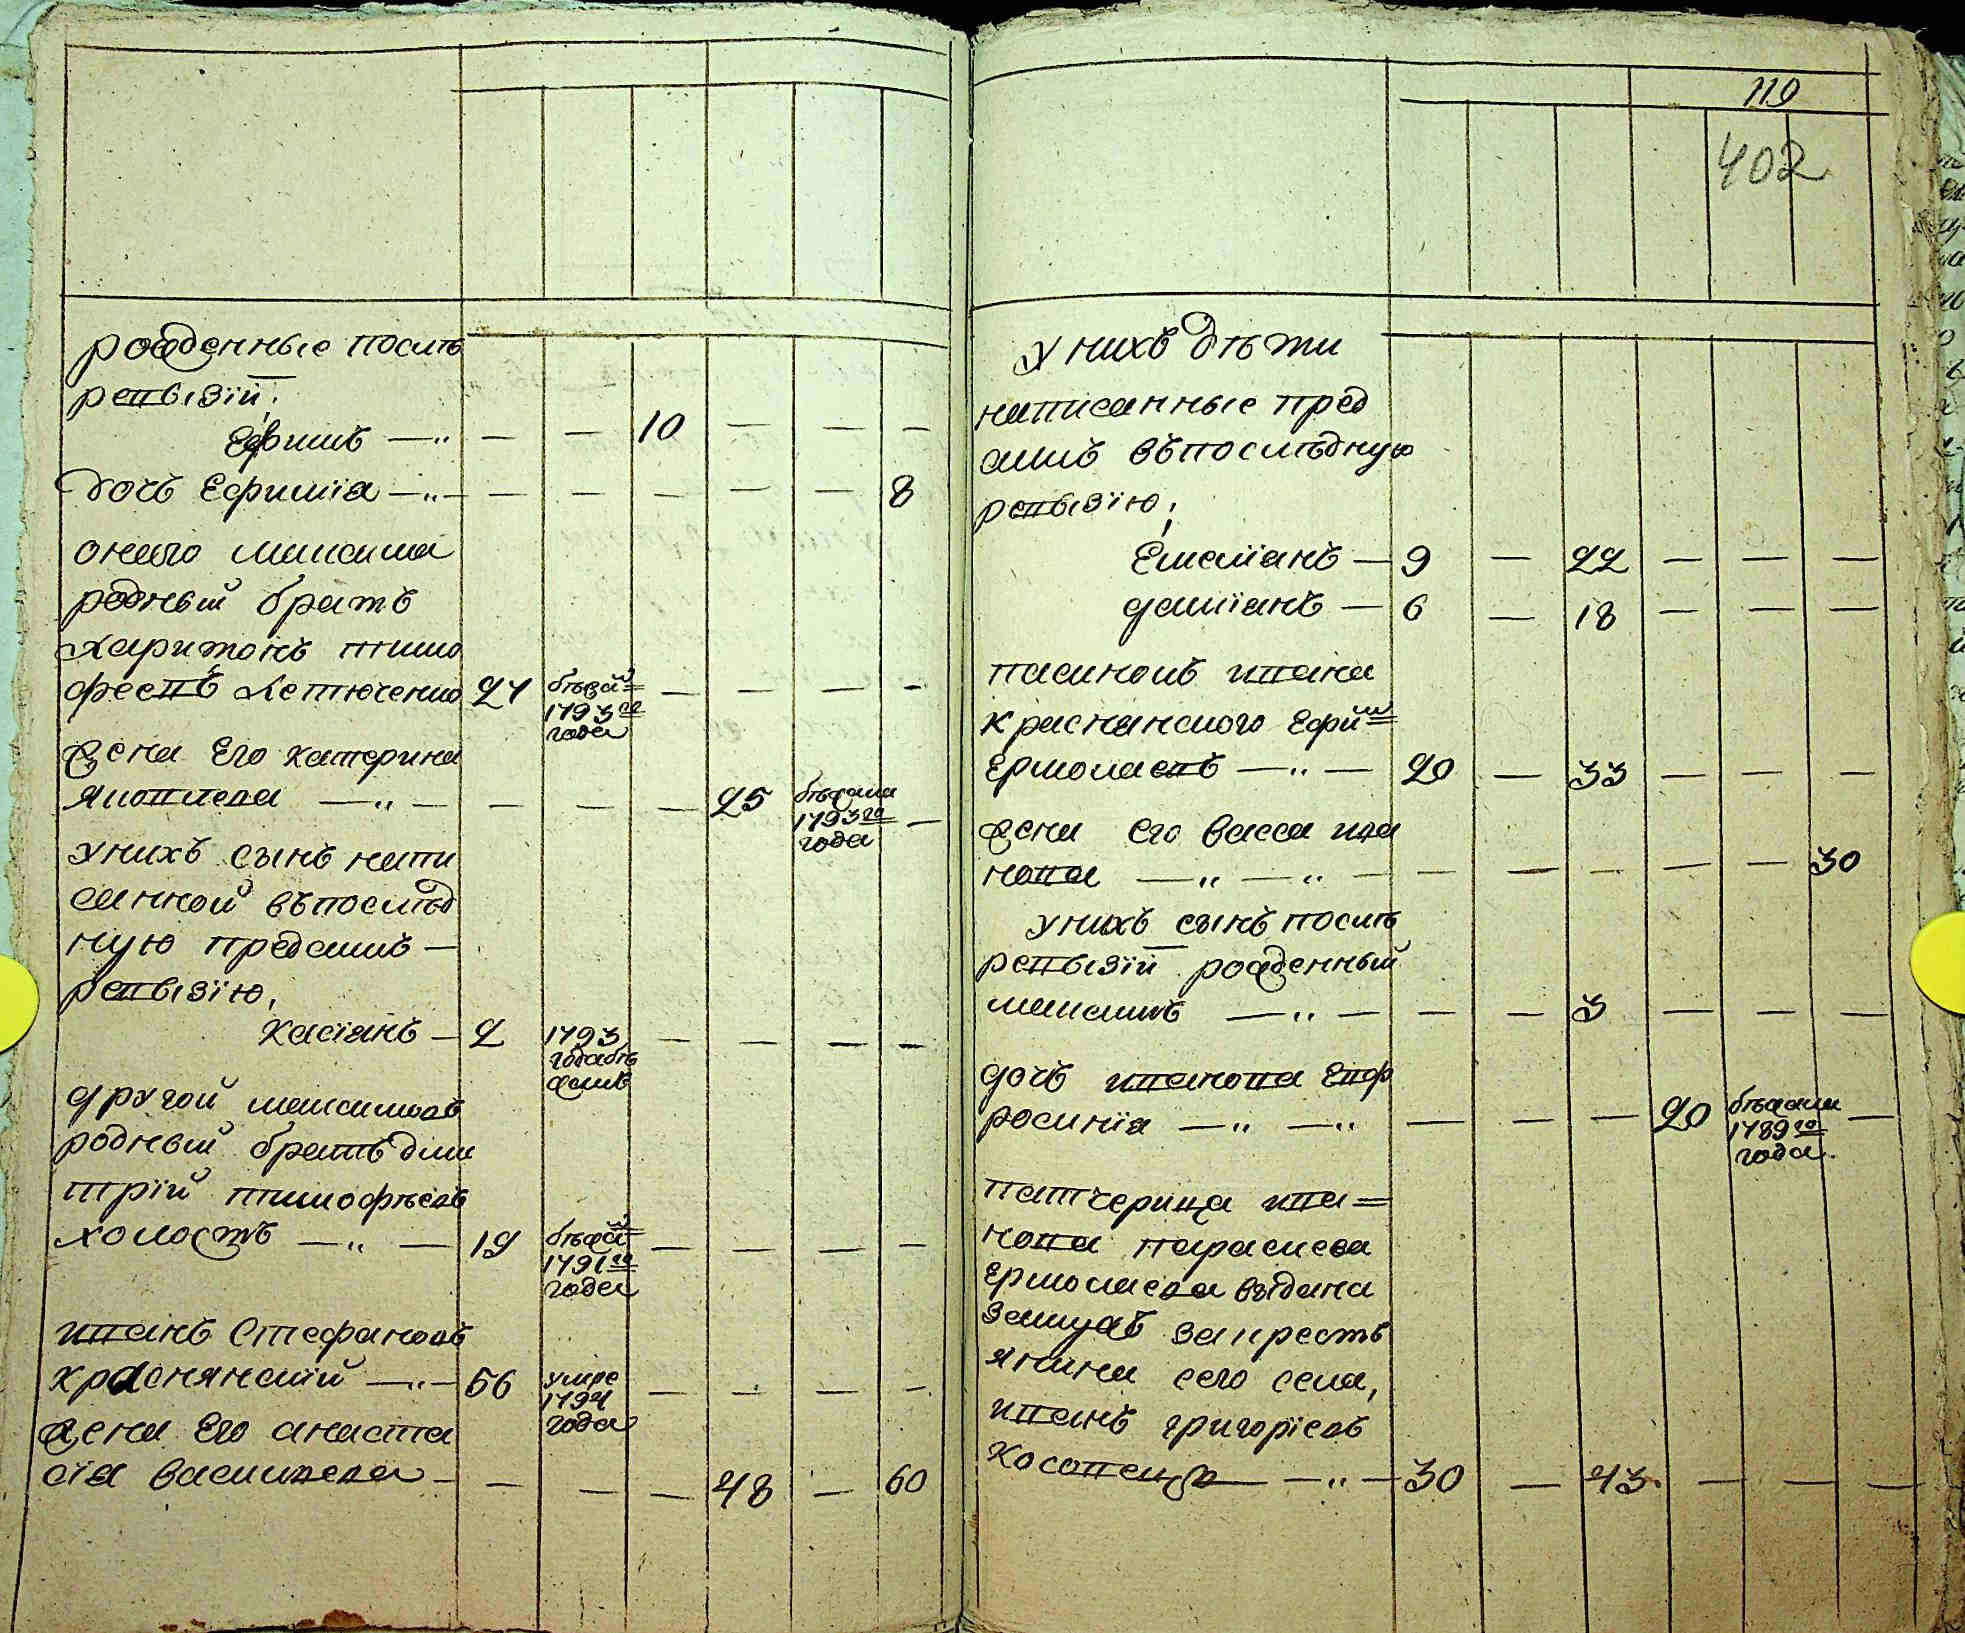 рожденные послѣ
ревизїй;
Ефимъ — „ — — 10 — — —
дочь Ефимїа — „ — — — — — 8
онаго максима
родный братъ
харитонъ тимо
феевъ 27 бѣжа̑ — — — —
1793го
года
жена Его катерина
яковлева — „ — — — — 25 бѣжала —
1793го
года
у нихъ сынъ напи
санной въ послѣд
ную предъ симъ —
ревизїю,
касїанъ — 2 1793 — — — —
года бѣ
жалъ
другой максимовъ
родный братъ дми
трїй тимофѣевъ
холостъ — „ — 19 бѣжа̑ — — — —
1791го
года
иванъ Стефановъ
краснянскїй — „ — 56 умре — — — —
1794
года
жена Его анаста
сїа василиева — — — — 48 — 60
119
402
у нихъ дѣти
написанные пред
симъ въ послѣдную
ревизїю;
Емелїанъ — 9 — 22 — — —
дамїанъ — 6 — 18 — — —
пасинокъ ивана
краснянского Ефим
Ермолаевъ — „ — 20 — 33 — — —
жена его васса ива
нова — „ — „ — — — — — — 30
у нихъ сынъ послѣ
ревизїй рожденный
максимъ — „ — — — 3 — — —
дочь иванова Евф
росинїа — „ — „ — — — 20 бѣжали —
1789го
года.
патчерица ива=
нова параскева
Ермолаева выдана
замужъ за кресть
янина сего села,
иванъ григорїевъ
— „ — 30 — 43. — — —